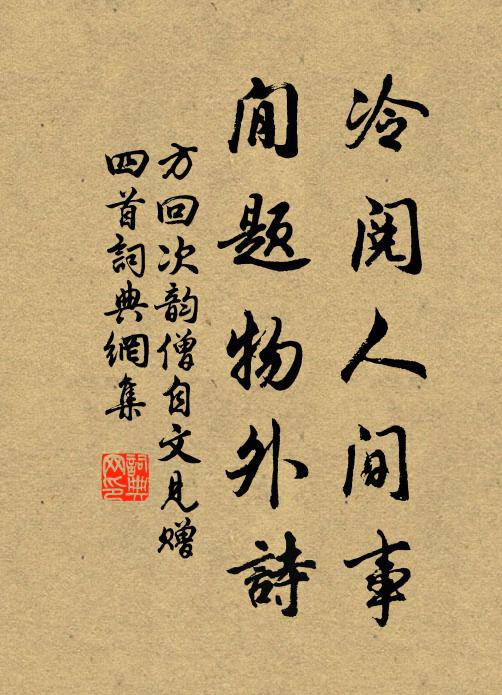 冷閱人間事
閒題物外詩
方回次韵僧自文見贈
四首詞典網集
詞典
网印